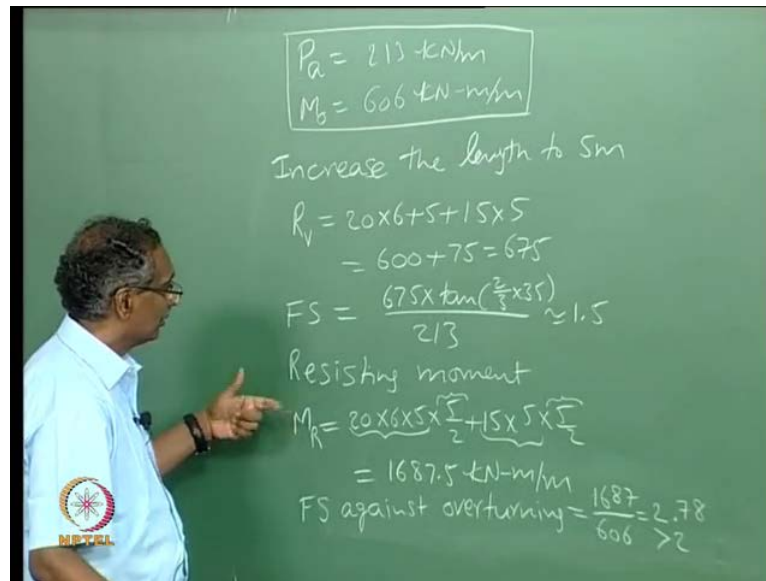 Pₐ = 213 kN/m
M₀ = 606 kN-m/m
Increase the length to 5m
Rᵥ = 20×6+5+15×5
= 600+75=675
FS = 675×tan(2/3×35) / 213 ≃ 1.5
Resisting moment
M_R = 20×6×5×5/2+15×5×5/2
= 1687.5 kN-m/m
FS against overturning = 1687/606 = 2.78
>2
NPTEL